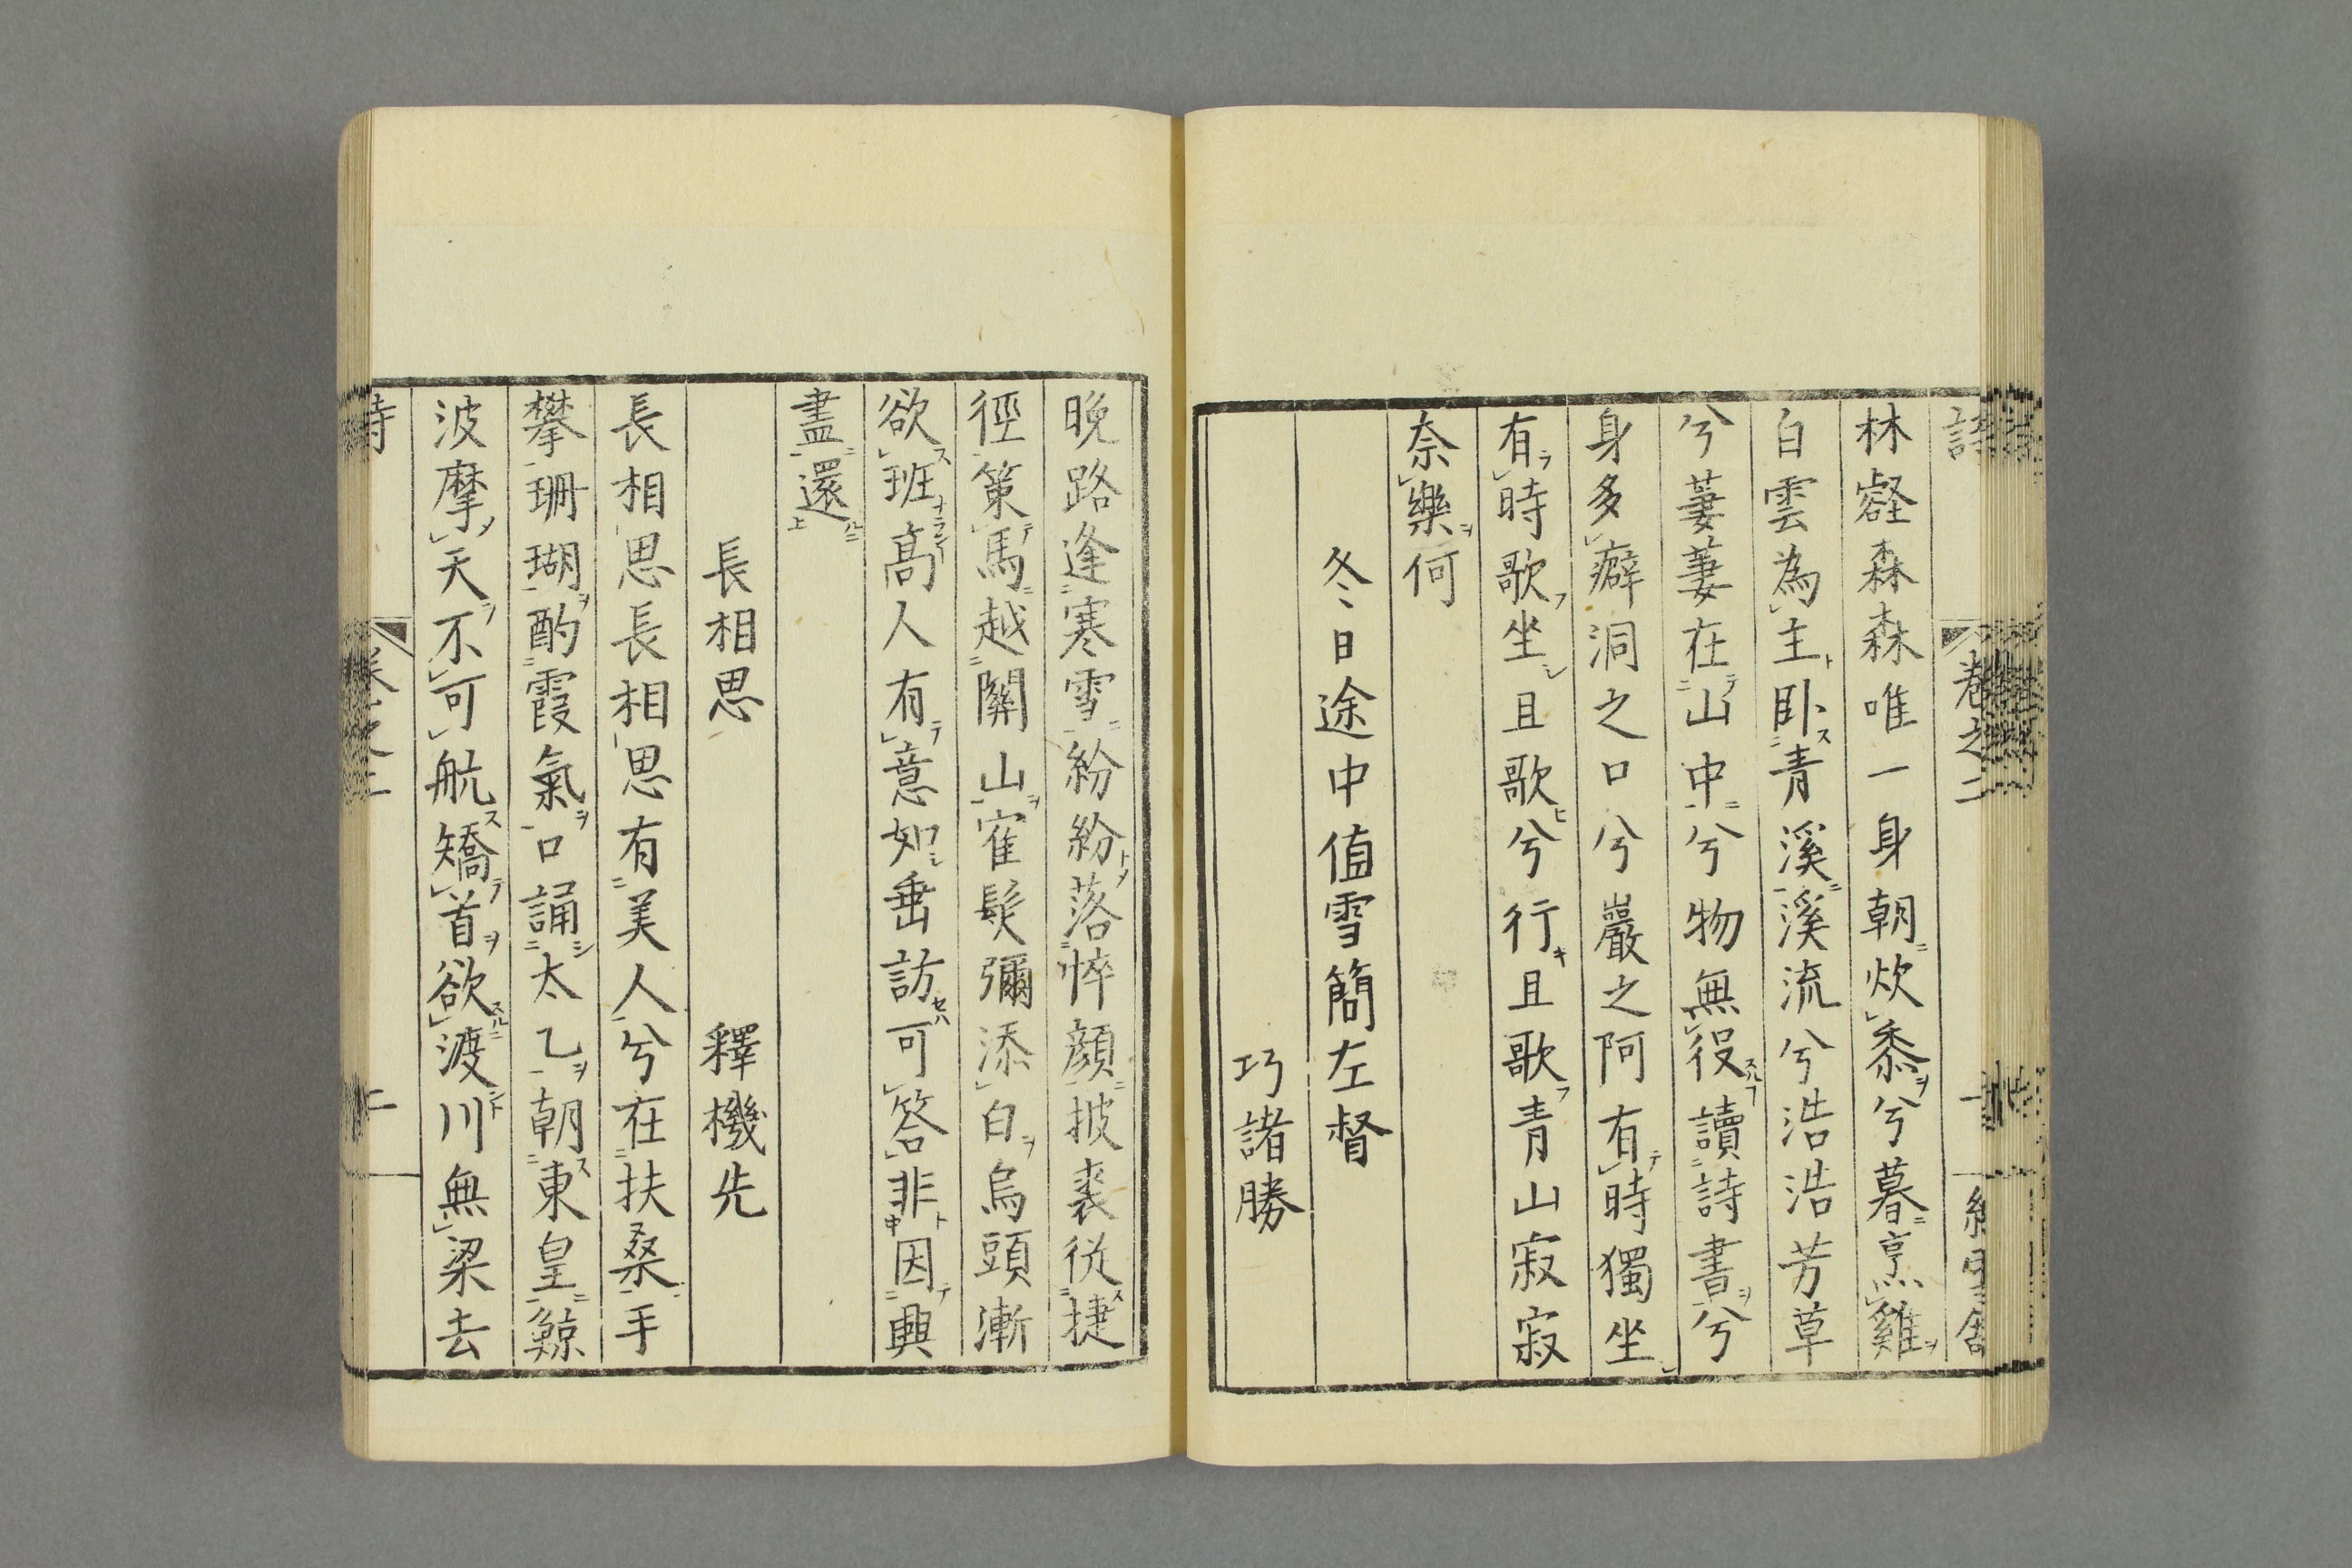 卷之二
林壑森森唯一身朝炊黍兮暮烹雞
白雲為主卧青溪溪流兮浩浩芳草
兮萋萋在山中兮物無役讀詩書兮
身多癖洞之口兮巖之阿有時獨坐
有時歌坐且歌兮行且歌青山寂寂
奈樂何
冬日途中值雪簡左督
巧諸勝
晚路逢寒雪紛紛落悴顔披裘從捷
徑策馬越關山寉髮彌添白烏頭漸
欲班高人有意如垂訪可答非因興
盡還
長相思
釋機先
長相思長相思有美人兮在扶桑手
攀珊瑚酌霞氣口誦太乙朝東皇鯨
波摩天不可航矯首欲渡川無梁去